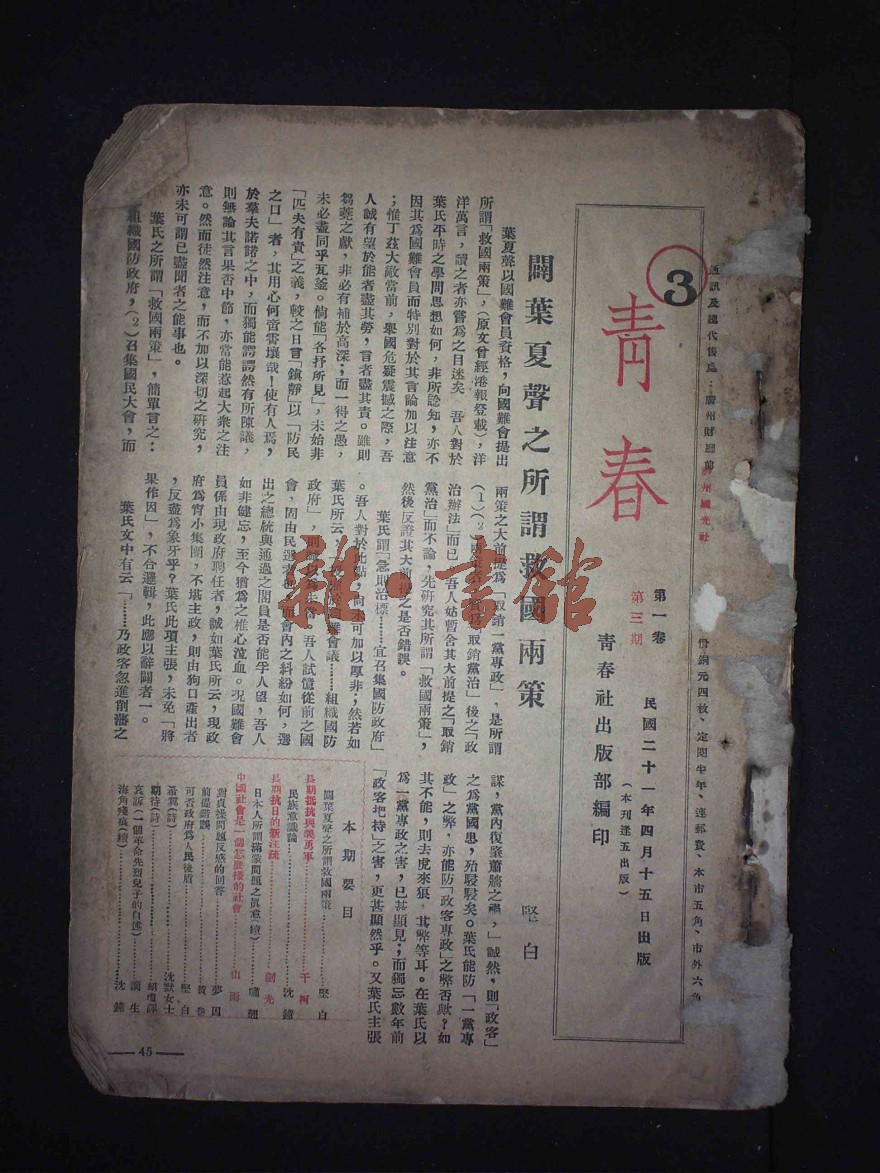 通訊及總代售處：廣州財廳前廣州國光社
份銅元四枚、定閱半年、連郵費、本市五角、市外六角
3
青春
第一卷
第三期
民國二十一年四月十五日出版
（本刊逢五出版）
青春社出版部編印
闢葉夏聲之所謂救國兩策
堅白
葉夏聲以國難會員資格，向國難會提出
所謂「救國兩策」，（原文曾經港報登載），洋
洋萬言，讀之者亦嘗爲之目迷矣　吾人對於
葉氏平時之學問思想如何，非所諗知，亦不
因其爲國難會員而特別對於其言論加以注意
；惟丁茲大敵當前，舉國危疑震撼之際，吾
人誠有望於能者盡其勞，言者盡其責。雖則
芻蕘之獻，非必有補於高深；而一得之愚，
未必盡同乎瓦釜。倘能「各抒所見」，未始非
「匹夫有責」之義，較之日言「鎮靜」以「防民
之口」者，其用心何啻霄壤哉！使有人焉，
於羣夫諾諾之中，而獨能諤諤然有所陳議，
則無論其言果否中節，亦當能惹起大衆之注
意。然而徒然注意，而不加以深切之研究，
亦未可謂已盡聞者之能事也。
葉氏之所謂「救國兩策」，簡單言之：
組織國防政府，（2）召集國民大會，而
兩策之大前提爲「取銷一黨專政」，是所謂
（1）（2）取銷黨治」後之「政
治辦法」而已，吾人姑暫舍其大前提之「取銷
黨治」而不論，先研究其所謂「救國兩策」，
然後反證其大前提之是否錯誤。
葉氏謂「急則治標……宜召集國防政府」
。吾人對於此點，尚未可加以厚非；然若如
葉氏所云，難會議……組織國防
政府」，則吾人試憶從前之國
會，固由民選者也，而會內之糾紛如何，選
出之總統與通過之閣員是否能孚人望，吾人
如非健忘，至今猶爲之椎心泣血。况國難會
員係由現政府聘任者，誠如葉氏所云，現政
府爲宵小集團，不堪主政，則由狗口產出者
，反盡爲象牙乎？葉氏此項主張，未免「將
果作因」，不合邏輯，此應以辭闢者一。
葉氏文中有云「……乃政客忽進削藩之
謀，黨內復肇蕭牆之釁，」誠然，則「政客」
之爲黨國患，殆駸駸矣。葉氏能防「一黨專
政」之弊，亦能防「政客專政」之弊否歟？如
其不能，則去虎來狼，其弊等耳。在葉氏以
爲一黨專政之害，已甚顯見；而獨忘數年前
「政客把持」之害，更甚顯然乎。又葉氏主張
本期要目
闢葉夏聲之所謂救國兩策……堅白
長期抵抗與義勇軍……干柯
民族意識論……沈鐘
長期抗日的新注疏……劍光
日本人所謂滿蒙問題之眞意（續）……嘯翹
中國社會是一個怎麼樣的社會……山雨
對貞操問題反感的回答……夢因
前提錯誤……
可否政府爲人民後盾……堅白
希冀（詩）……沈默女士
期待（詩）……
哀訴（一個革命先烈兒子的自述）……生
海角殘痕（續）……沈鐘
45
雜·書館